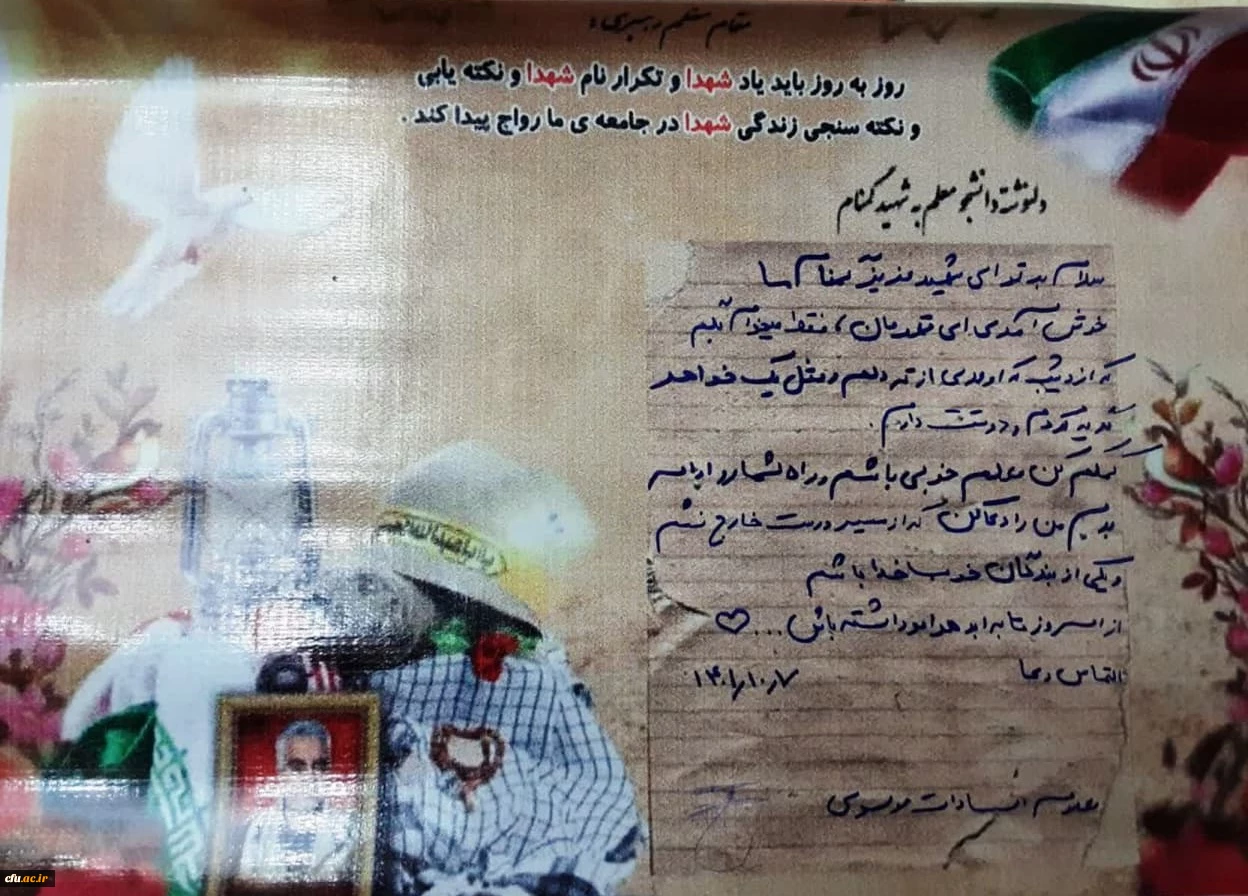 مقام معظم رهبری:
روز به روز باید یاد شهدا و تکرار نام شهدا و نکته یابی
و نکته سنجی زندگی شهدا در جامعه ی ما رواج پیدا کند .
دلنوشته دانشجو معلم به شهید گمنام
سلام به تو ای شهید عزیز گمنام ما
خوش آمدی ای قهرمان، فقط میخوام بگم
که از دیشب که اومدی از ته دلم و مثل یک خواهر
گریه کردم و دوستت دارم.
کمکم کن معلم خوبی باشم و راه شمارو ادامه
بدم من را دعا کن که از مسیر درست خارج نشم
و یکی از بندگان خوب خدا باشم
از امروز تا به ابد هوامو داشته باش ... ♡
التماس دعا
۱۴۰۱/۱۰/۷
السادات موسوی
cfu.ac.ir